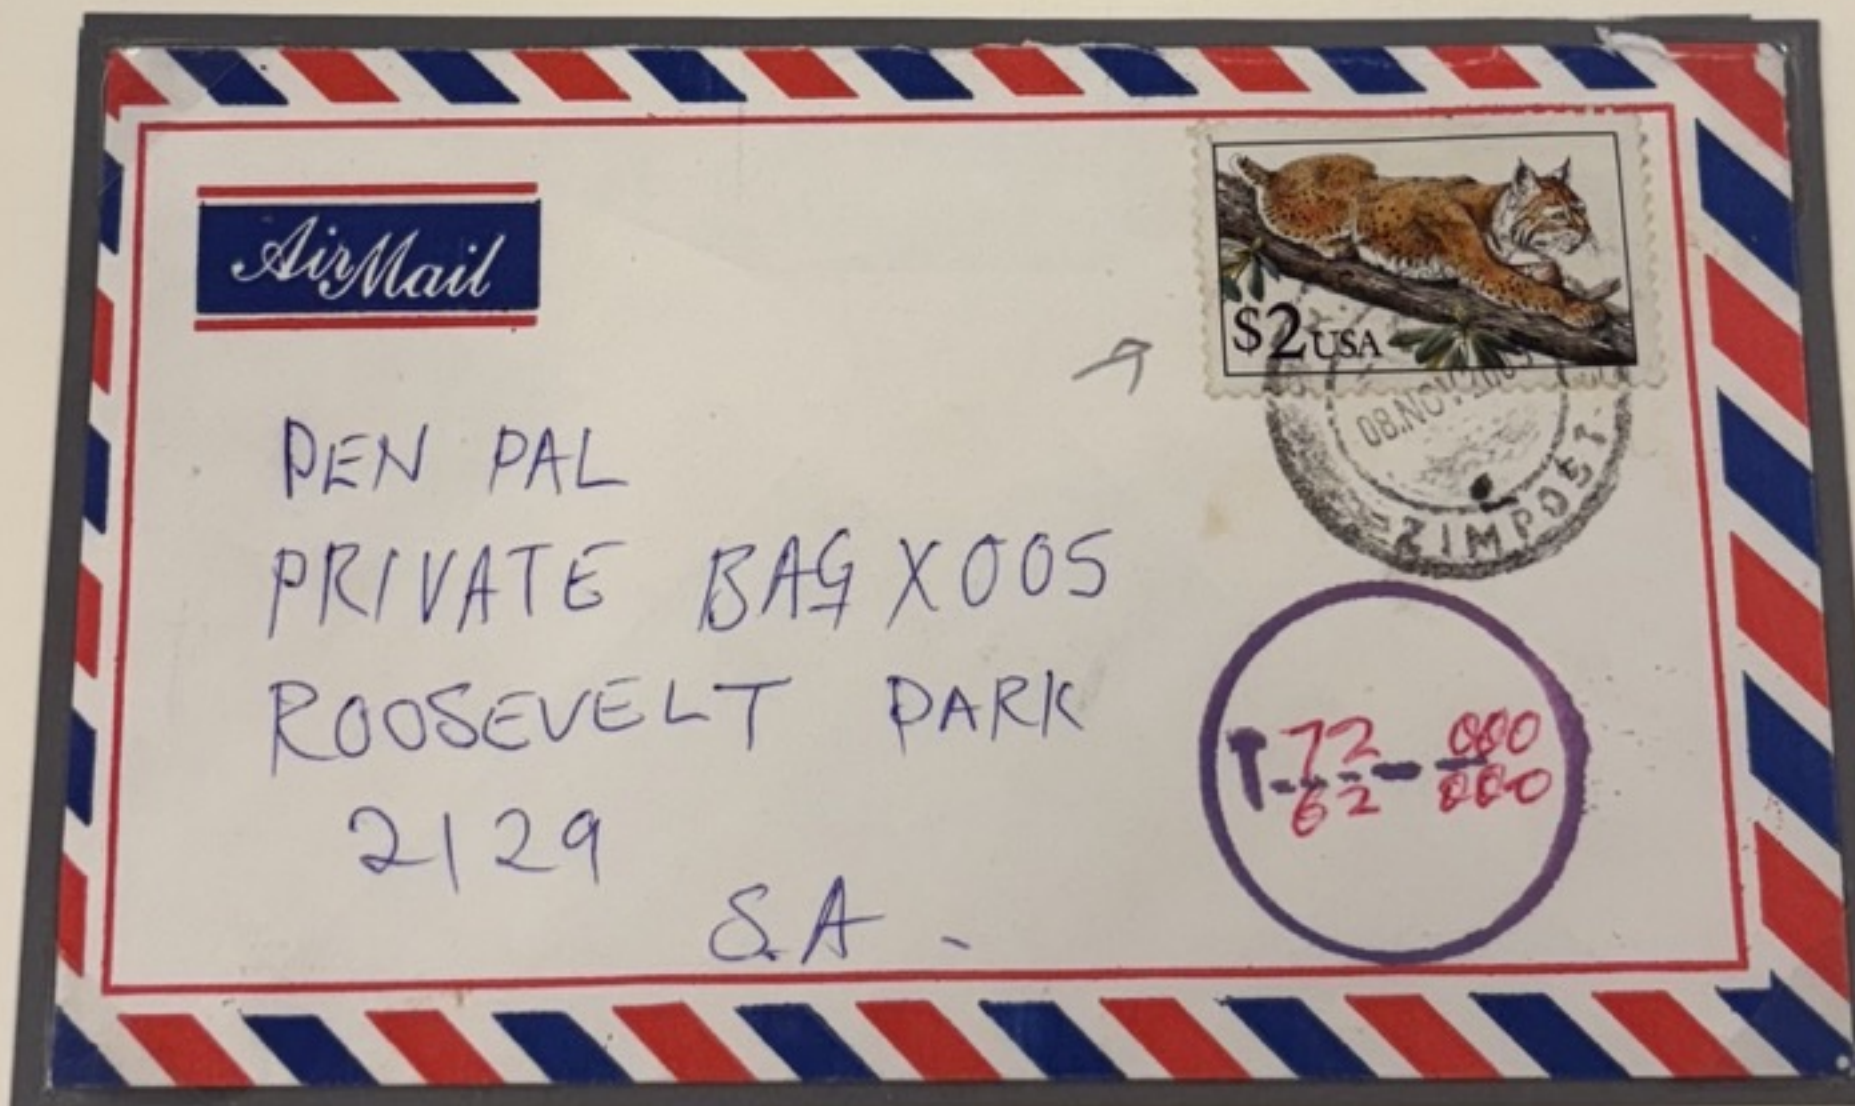 Air Mail
$2 USA
08.NOV.2003
ZIMPOST
PEN PAL
PRIVATE BAG X005
ROOSEVELT PARK
2129
S.A.
T 72 - 000
62 000